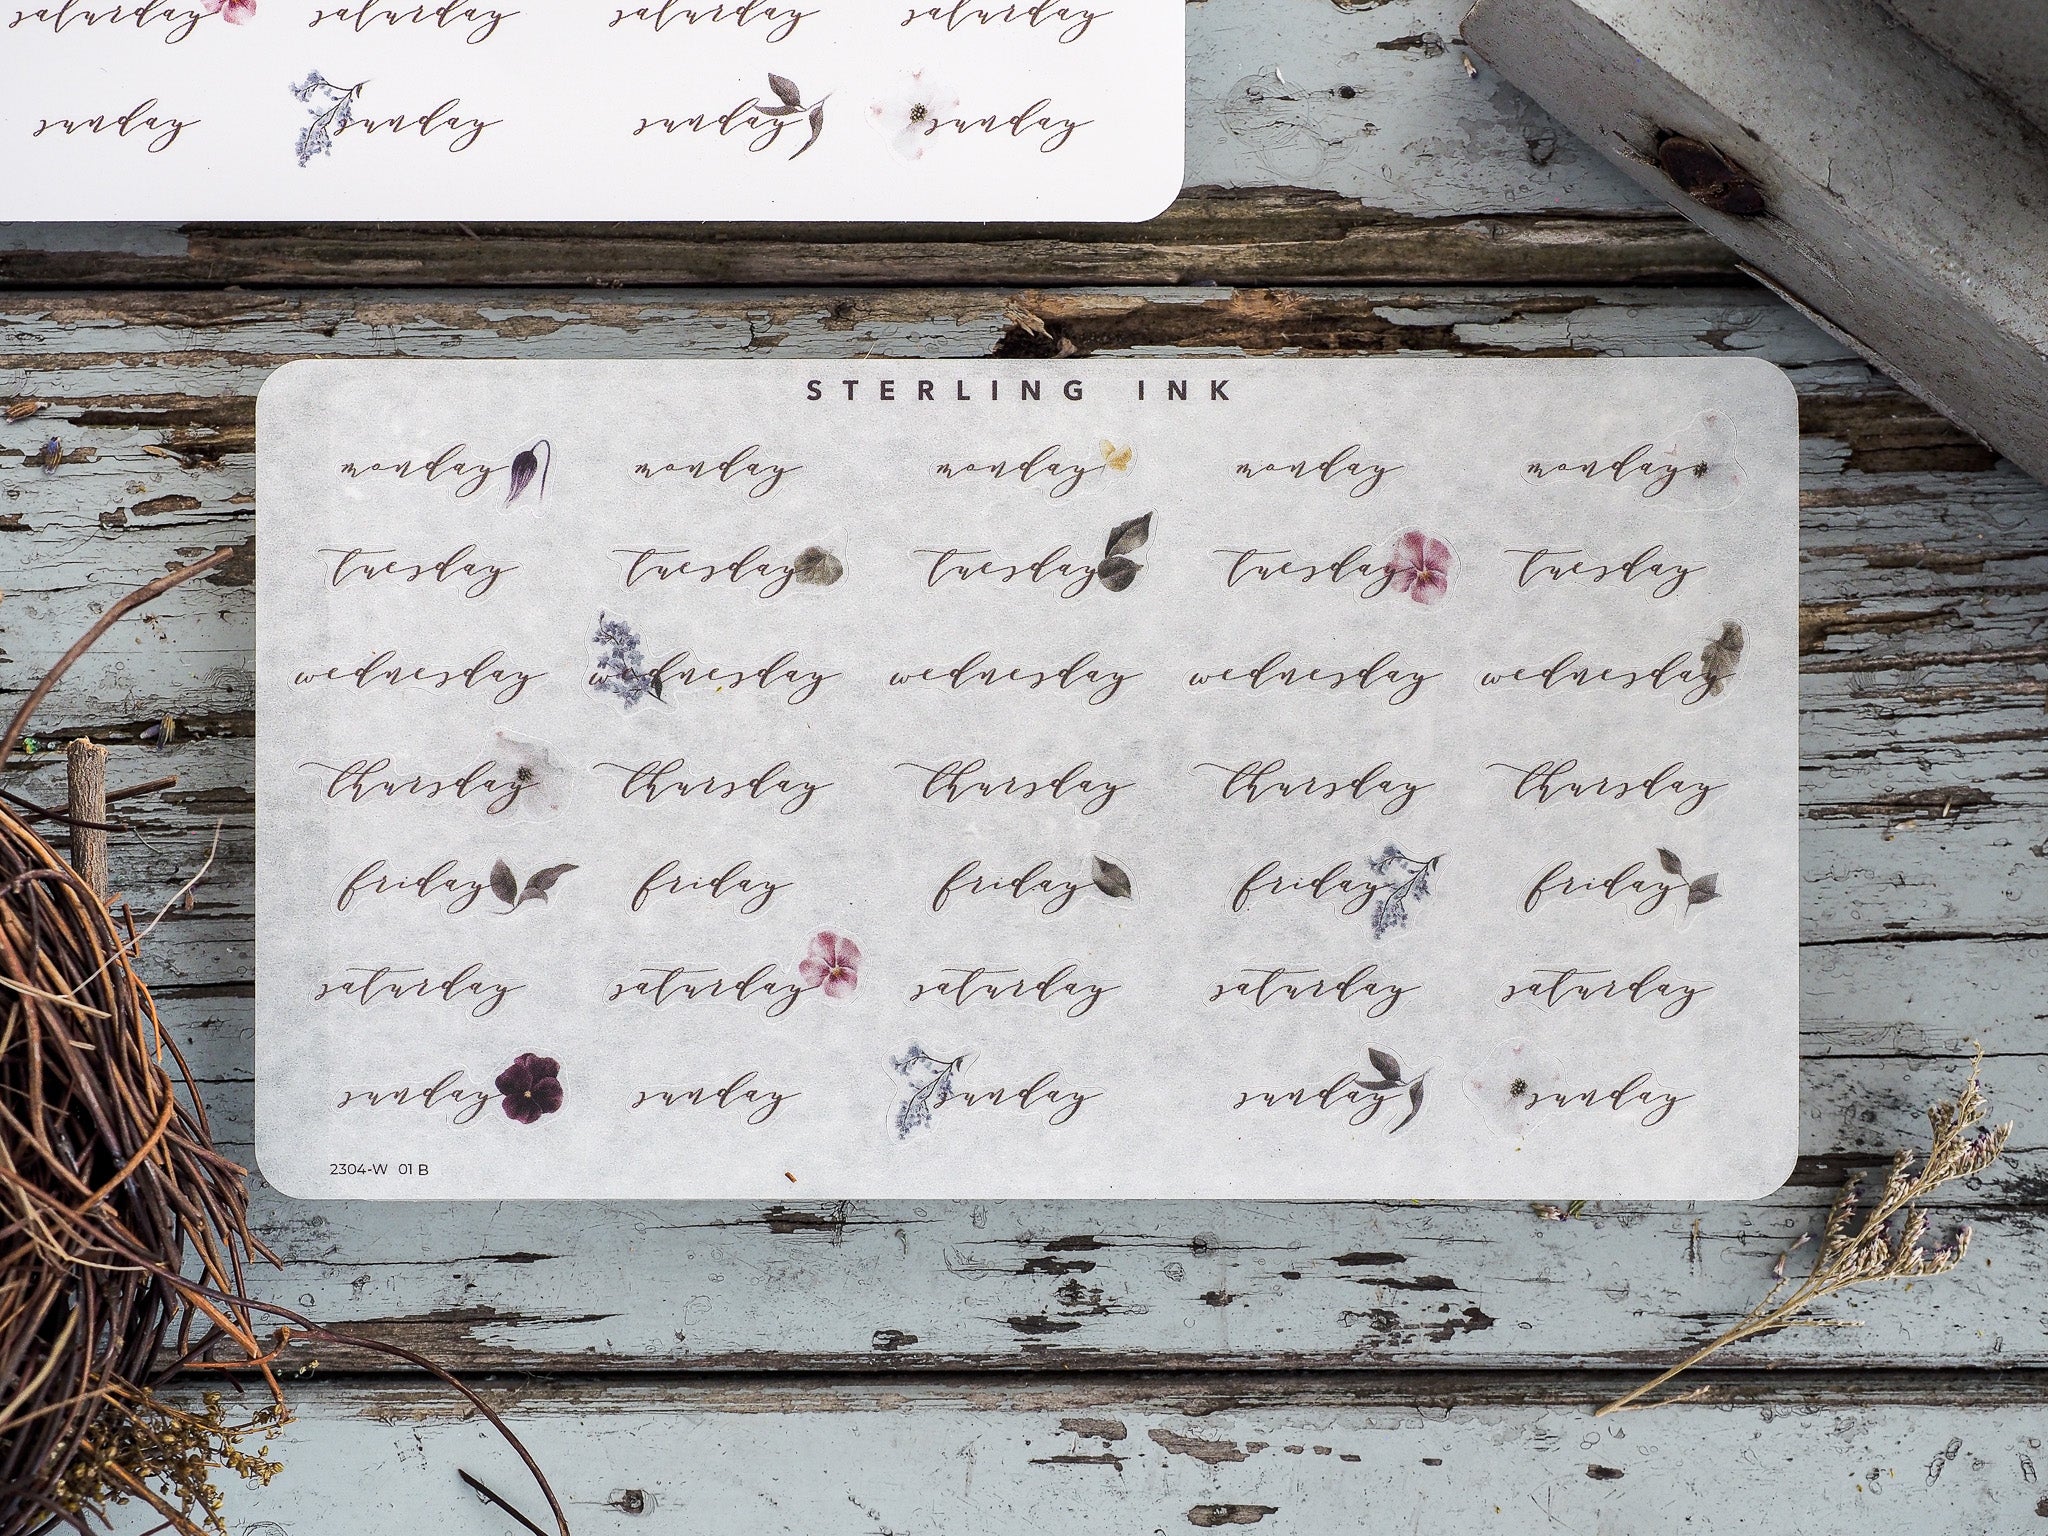 saturday saturday saturday saturday
sunday sunday sunday sunday
STERLING INK
monday monday monday monday monday
tuesday tuesday tuesday tuesday tuesday
wednesday wednesday wednesday wednesday wednesday
thursday thursday thursday thursday thursday
friday friday friday friday friday
saturday saturday saturday saturday saturday
sunday sunday sunday sunday sunday
2304-W 01 B